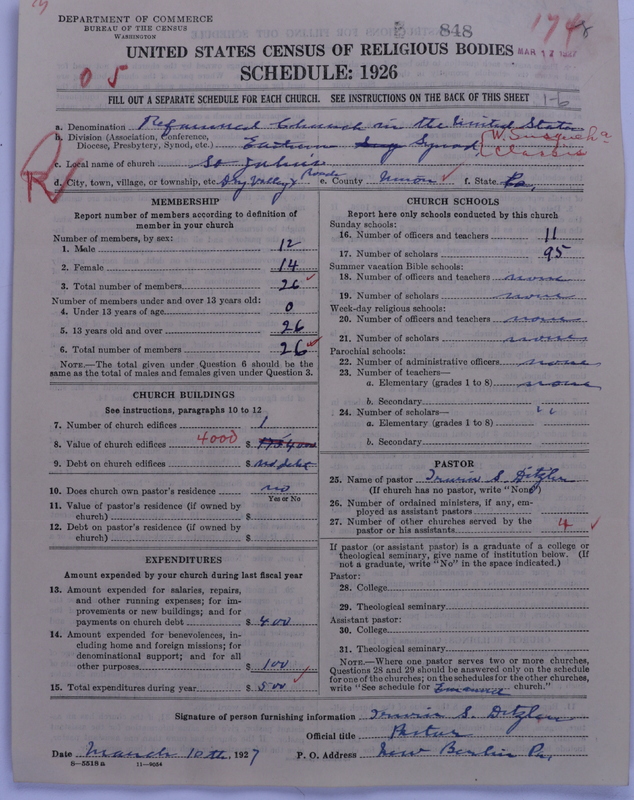 DEPARTMENT OF COMMERCE
BUREAU OF THE CENSUS
WASHINGTON
848
MAR 17 1927
UNITED STATES CENSUS OF RELIGIOUS BODIES
SCHEDULE: 1926
0 5
FILL OUT A SEPARATE SCHEDULE FOR EACH CHURCH. SEE INSTRUCTIONS ON THE BACK OF THIS SHEET
1-6
a. Denomination Reformed Church in the United States
b. Division (Association, Conference, Diocese, Presbytery, Synod, etc.) Eastern Synod (W. Susquehana Classis
c. Local name of church St Johns
R
d. City, town, village, or township, etc. Dry Valley X Roads e. County Union ✓ f. State Pa.
MEMBERSHIP
Report number of members according to definition of member in your church
Number of members, by sex:
1. Male 12
2. Female 14
3. Total number of members 26 ✓
Number of members under and over 13 years old:
4. Under 13 years of age 0
5. 13 years old and over 26
6. Total number of members 26 ✓
NOTE.—The total given under Question 6 should be the same as the total of males and females given under Question 3.
CHURCH BUILDINGS
See instructions, paragraphs 10 to 12
7. Number of church edifices 1
8. Value of church edifices 4000 $
9. Debt on church edifices $ no debt
10. Does church own pastor's residence no
Yes or No
11. Value of pastor's residence (if owned by church) $
12. Debt on pastor's residence (if owned by church) $
EXPENDITURES
Amount expended by your church during last fiscal year
13. Amount expended for salaries, repairs, and other running expenses; for improvements or new buildings; and for payments on church debt $ 400
14. Amount expended for benevolences, including home and foreign missions; for denominational support; and for all other purposes $ 100
15. Total expenditures during year $ 500 ✓
CHURCH SCHOOLS
Report here only schools conducted by this church
Sunday schools:
16. Number of officers and teachers 11
17. Number of scholars 95
Summer vacation Bible schools:
18. Number of officers and teachers none
19. Number of scholars none
Week-day religious schools:
20. Number of officers and teachers none
21. Number of scholars none
Parochial schools:
22. Number of administrative officers none
23. Number of teachers—
a. Elementary (grades 1 to 8) none
b. Secondary
24. Number of scholars— " "
a. Elementary (grades 1 to 8)
b. Secondary
PASTOR
25. Name of pastor Irwin S. Ditzler
(If church has no pastor, write "None")
26. Number of ordained ministers, if any, employed as assistant pastors
27. Number of other churches served by the pastor or his assistants 4 ✓
If pastor (or assistant pastor) is a graduate of a college or theological seminary, give name of institution below. (If not a graduate, write "No" in the space indicated.)
Pastor:
28. College
29. Theological seminary
Assistant pastor:
30. College
31. Theological seminary
NOTE.—Where one pastor serves two or more churches, Questions 28 and 29 should be answered only on the schedule for one of the churches; on the schedules for the other churches, write "See schedule for Emanuel church."
Signature of person furnishing information Irwin S. Ditzler
Official title Pastor
Date March 10th, 1927 P. O. Address New Berlin Pa.
8—5518 a 11—9064